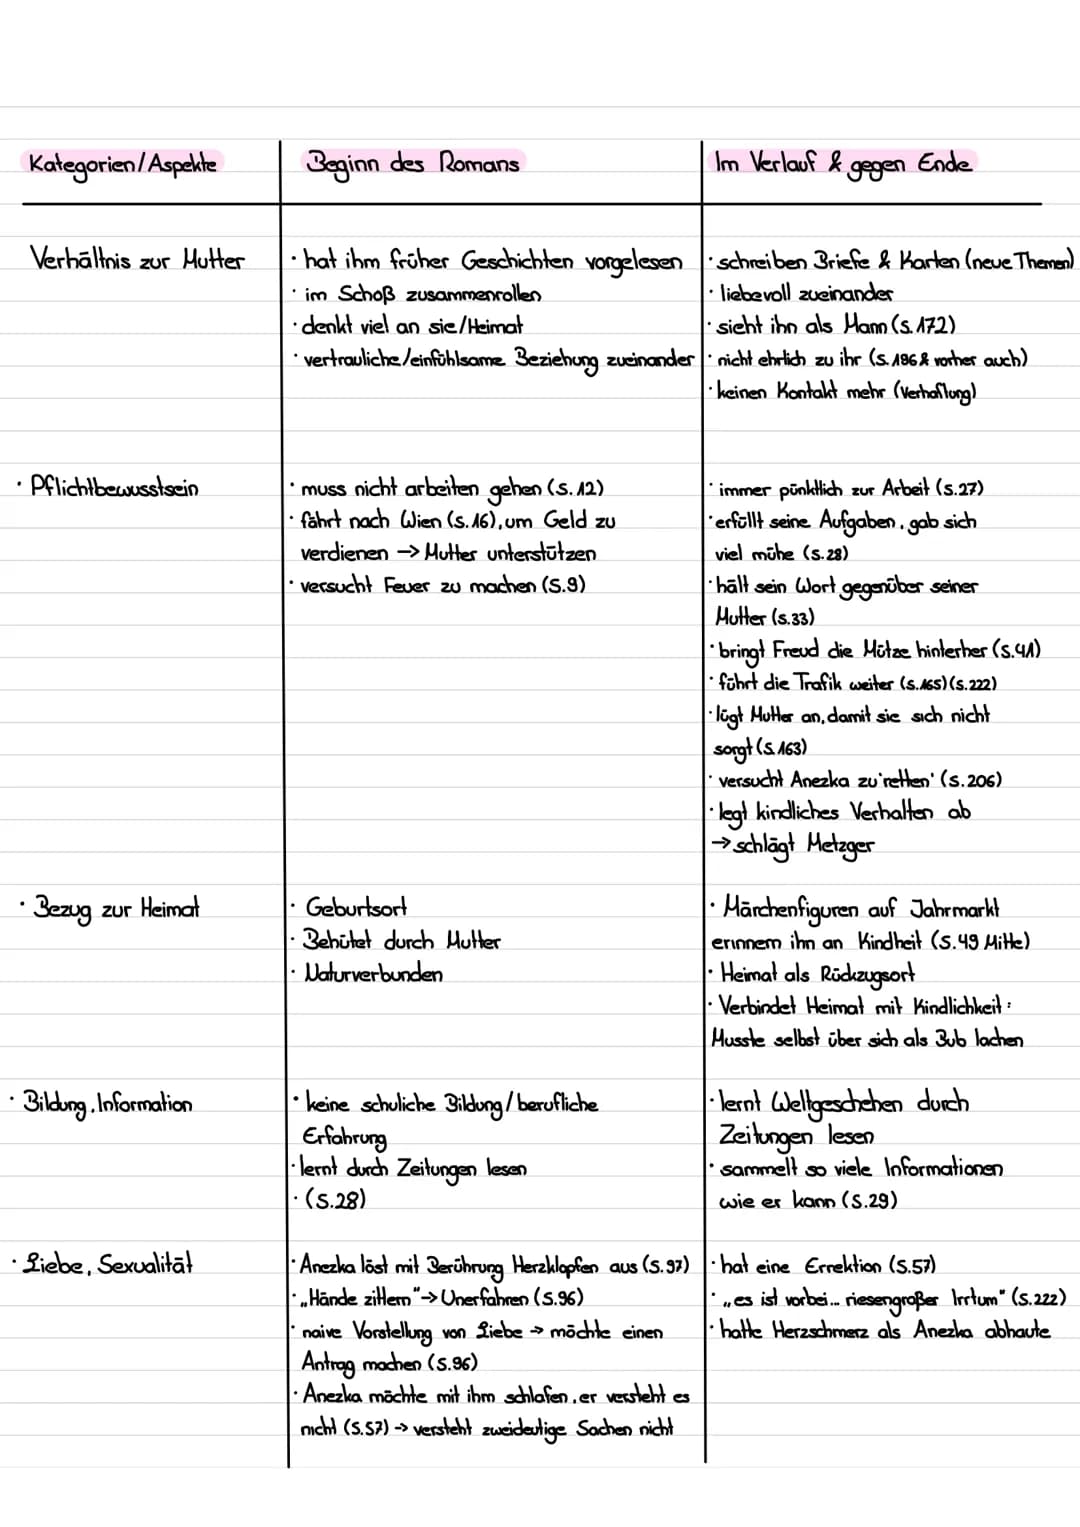 Kategorien/Aspekte
Beginn des Romans
Im Verlauf & gegen Ende
Verhältnis zur Mutter
· hat ihm früher Geschichten vorgelesen
· im Schoß zusammenrollen
· denkt viel an sie/Heimat
· vertrauliche/einfühlsame Beziehung zueinander
· schreiben Briefe & Karten (neue Themen)
· liebevoll zueinander
· sieht ihn als Mann (S.172)
· nicht ehrlich zu ihr (S.196 & vorher auch)
· keinen Kontakt mehr (Verhaftung)
· Pflichtbewusstsein
· muss nicht arbeiten gehen (S.12)
· fährt nach Wien (S.16), um Geld zu
verdienen → Mutter unterstützen
· versucht Feuer zu machen (S.9)
· immer pünktlich zur Arbeit (S.27)
· erfüllt seine Aufgaben, gab sich
viel mühe (S.28)
· hält sein Wort gegenüber seiner
Mutter (S.33)
· bringt Freud die Mütze hinterher (S.41)
· führt die Trafik weiter (S.165) (S.222)
· lügt Mutter an, damit sie sich nicht
sorgt (S.163)
· versucht Anezka zu 'retten' (S.206)
· legt kindliches Verhalten ab
→ schlägt Metzger
· Bezug zur Heimat
· Geburtsort
· Behütet durch Mutter
· Naturverbunden
· Märchenfiguren auf Jahrmarkt
erinnern ihn an Kindheit (S.49 Mitte)
· Heimat als Rückzugsort
· Verbindet Heimat mit Kindlichkeit:
Musste selbst über sich als Bub lachen
· Bildung, Information
· keine schuliche Bildung/berufliche
Erfahrung
· lernt durch Zeitungen lesen
· (S.28)
· lernt Weltgeschehen durch
Zeitungen lesen
· sammelt so viele Informationen
wie er kann (S.29)
· Liebe, Sexualität
· Anezka löst mit Berührung Herzklopfen aus (S.97)
· „Hände zittern" → Unerfahren (S.96)
· naive Vorstellung von Liebe → möchte einen
Antrag machen (S.96)
· Anezka möchte mit ihm schlafen, er versteht es
nicht (S.57) → versteht zweideutige Sachen nicht
· hat eine Errektion (S.57)
· „es ist vorbei... riesengroßer Irrtum" (S.222)
· hatte Herzschmerz als Anezka abhaute